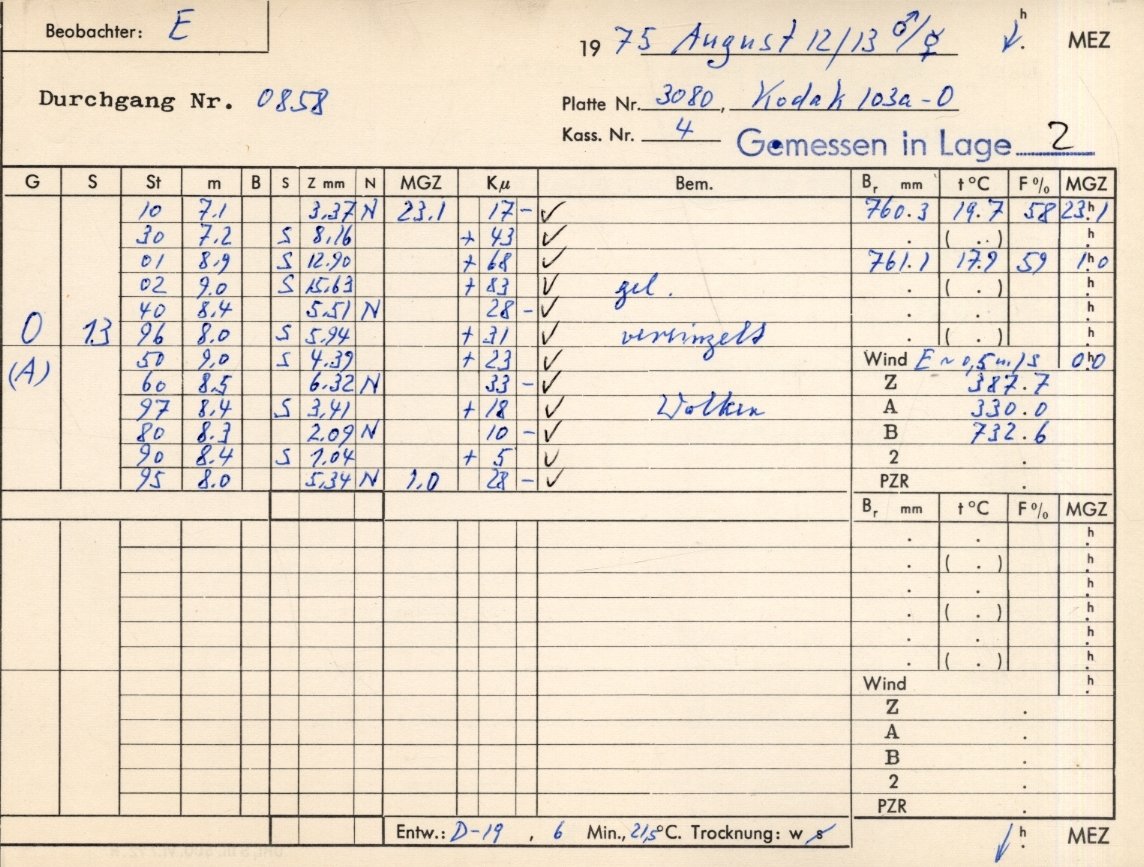 Beobachter: E
19 75 August 12/13 ♂/☿ h . MEZ
Durchgang Nr. 0858
Platte Nr. 3080, Kodak 103a-O
Kass. Nr. 4 Gemessen in Lage 2
G S St m B S Z mm N MGZ Kμ Bem. Br mm t °C F % MGZ
10 7.1 3.37 N 23.1 17 - ✓ 760.3 19.7 58 23h.1
30 7.2 S 8.16 + 43 ✓ . ( . ) h.
01 8.9 S 12.90 + 68 ✓ 761.1 17.9 59 1h.0
02 9.0 S 15.63 + 83 ✓ gel. . ( . ) h.
40 8.4 5.51 N 28 - ✓ . . h.
0 13 96 8.0 S 5.94 + 31 ✓ vereinzelt . ( . ) h.
(A) 50 9.0 S 4.39 + 23 ✓ Wind E ~ 0,5 m/s 0h.0
60 8.5 6.32 N 33 - ✓ Z 387.7
97 8.4 S 3.41 + 18 ✓ Wolken A 330.0
80 8.3 2.09 N 10 - ✓ B 732.6
90 8.4 S 1.04 + 5 ✓ 2 .
95 8.0 5.34 N 1.0 28 - ✓ PZR .
Br mm t °C F % MGZ
. . h.
. ( . ) h.
. . h.
. ( . ) h.
. . h.
. ( . ) h.
Wind h.
Z .
A .
B .
2 .
PZR .
Entw.: D-19 , 6 Min., 21,5 °C. Trocknung: w s h . MEZ